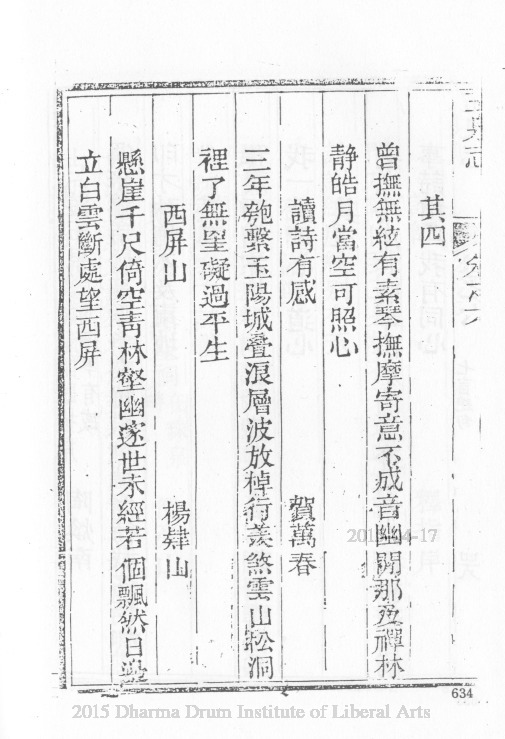 其四
曾撫無絃有素琴撫摩寄意不成音幽閒那及禪林
靜皓月當空可照心
讀詩有感 賀萬春
三年匏繫玉陽城疊浪層波放棹行羨煞雲山松洞
裡了無罣礙過平生
西屏山 楊肄山
懸崖千尺倚空青林壑幽邃世未經若個飄然日邊
立白雲斷處望西屏
634
2015 Dharma Drum Institute of Liberal Arts